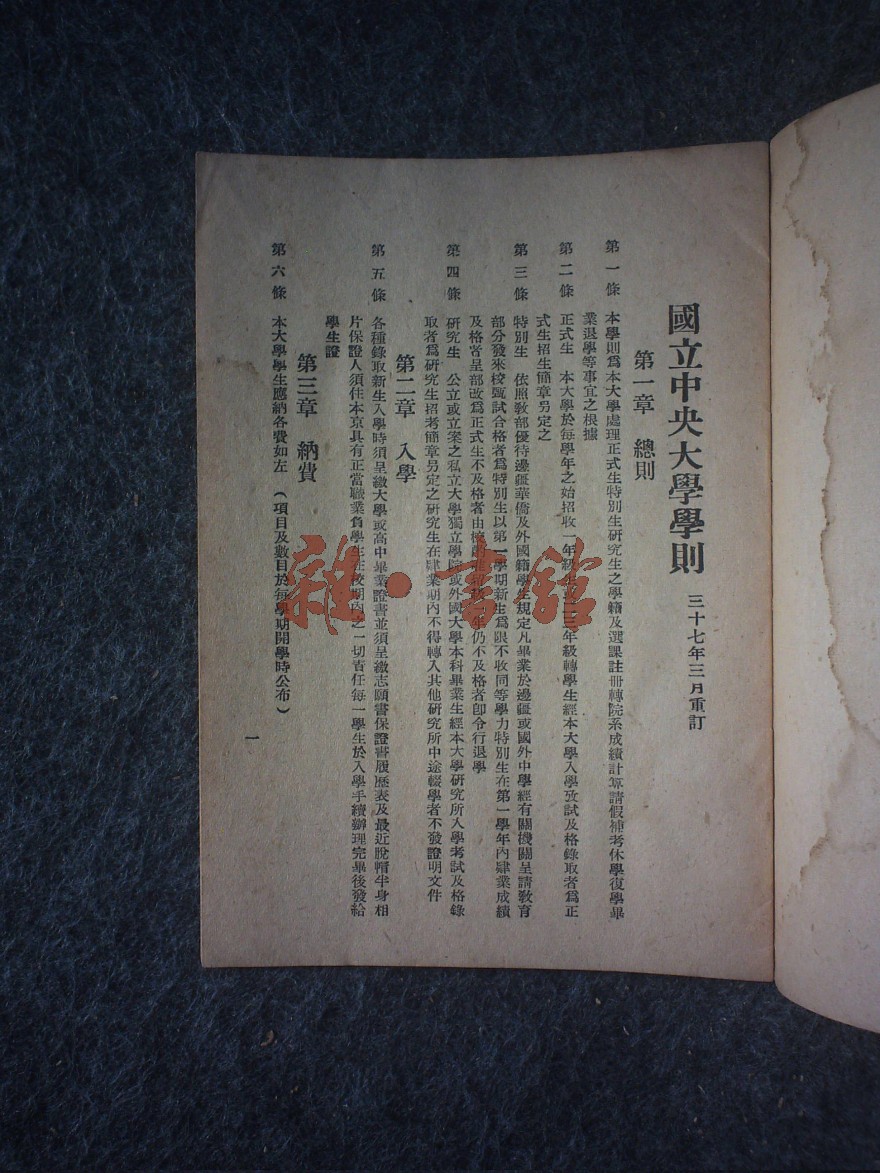 國立中央大學學則 三十七年三月重訂
第一章 總則
第一條 本學則爲本大學處理正式生特別生研究生之學籍及選課註册轉院系成績計算請假補考休學復學畢
業退學等事宜之根據
第二條 正式生 本大學於每學年之始招收一年級生或二三年級轉學生經本大學入學攷試及格錄取者爲正
式生招生簡章另定之
第三條 特別生 依照敎部優待邊疆華僑及外國籍學生規定凡畢業於邊疆或國外中學經有關機關呈請敎育
部分發來校甄試合格者爲特別生以第一學期新生爲限不收同等學力特別生在第一學年內肄業成績
及格者呈部改爲正式生不及格者由校 年仍不及格者卽令行退學
第四條 研究生 公立或立案之私立大學獨立學院或外國大學本科畢業生經本大學研究所入學考試及格錄
取者爲研究生招考簡章另定之研究生在肄業期內不得轉入其他研究所中途輟學者不發證明文件
第二章 入學
第五條 各種錄取新生入學時須呈繳大學或高中畢業證書並須呈繳志願書保證書履歷表及最近脫帽半身相
片保證人須住本京具有正當職業負學生在校期內之一切責任每一學生於入學手續辦理完畢後發給
學生證
第三章 納費
第六條 本大學學生應納各費如左 (項目及數目於每學期開學時公布)
一
雜·書館